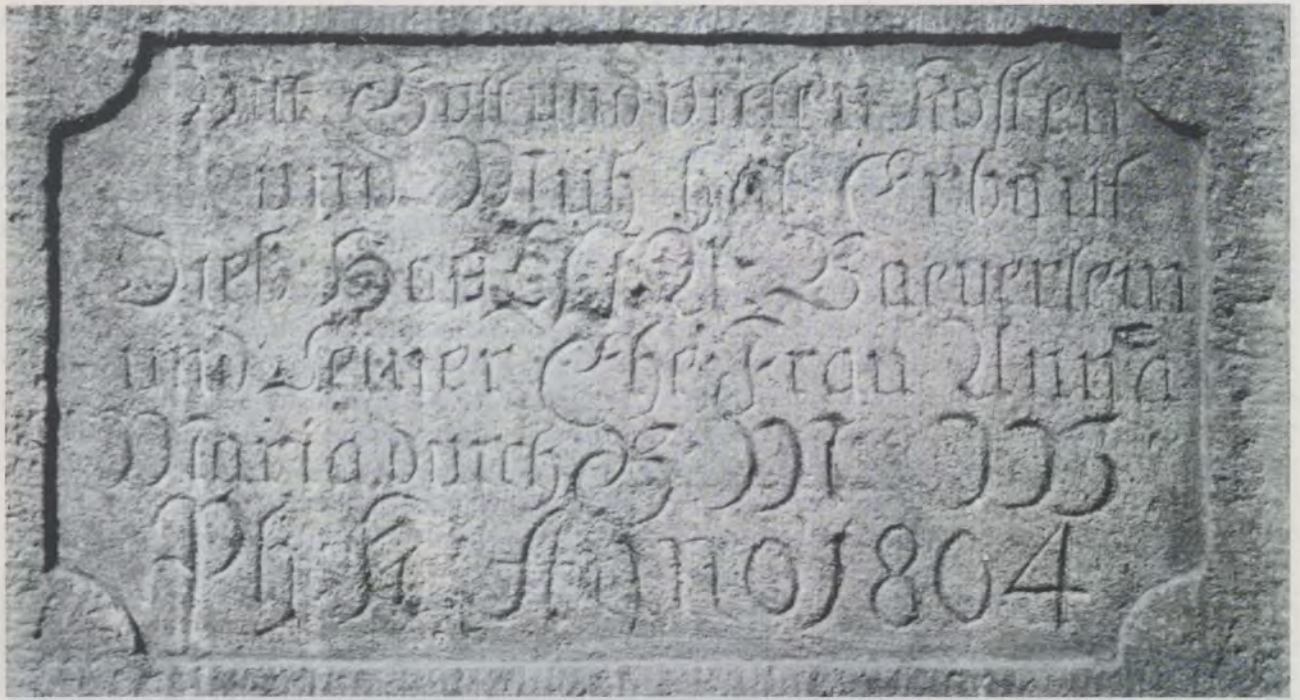 Mit Gott und vielen Kosten
und Müh hat Erbaut
Dieß Haus Baeuerlein
und Seiner Ehe Frau Anna
Maria durch M W
Ph K Anno 1804